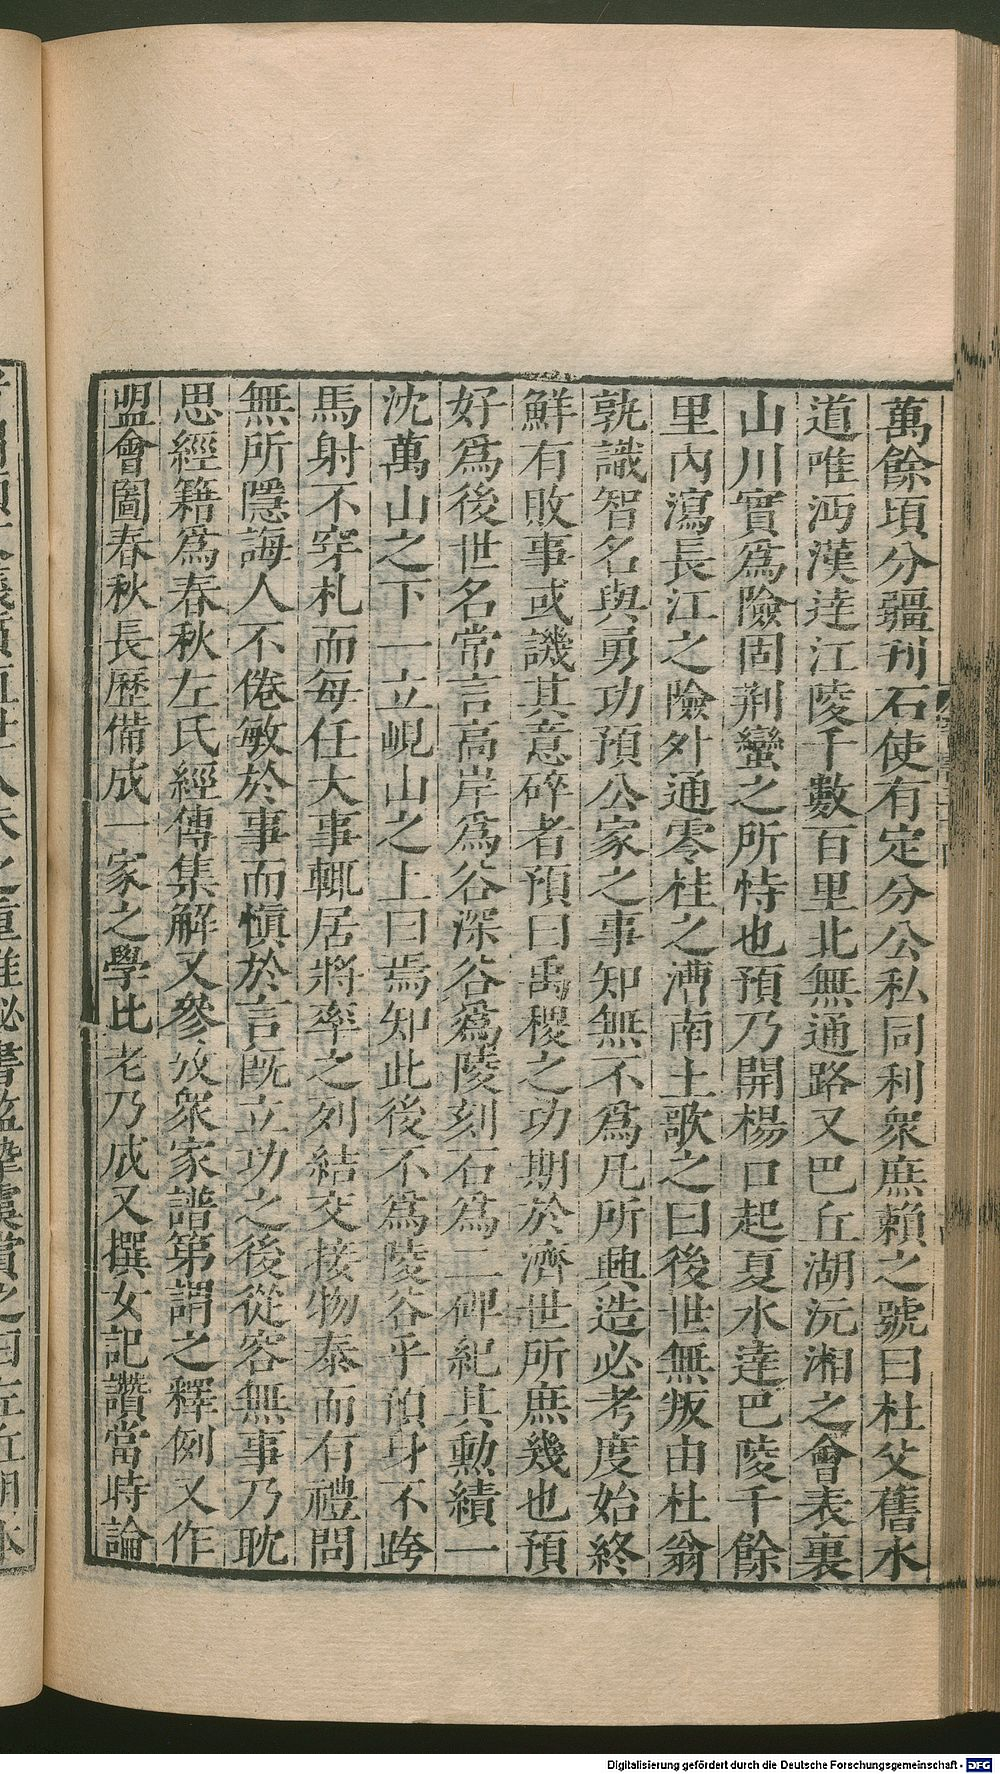 萬餘頃分疆刊石使有定分公私同利衆庶賴之號曰杜父舊水
道唯沔漢達江陵千數百里北無通路又巴丘湖沅湘之會表裏
山川實爲險固荆蠻之所恃也預乃開楊口起夏水達巴陵千餘
里內瀉長江之險外通零桂之漕南土歌之曰後世無叛由杜翁
孰識智名與勇功預公家之事知無不爲凡所興造必考度始終
鮮有敗事或譏其意碎者預曰禹稷之功期於濟世所庶幾也預
好爲後世名常言高岸爲谷深谷爲陵刻石爲二碑紀其勳績一
沈萬山之下一立峴山之上曰焉知此後不爲陵谷乎預身不跨
馬射不穿札而每任大事輒居將率之列結交接物恭而有禮問
無所隱誨人不倦敏於事而慎於言旣立功之後從容無事乃耽
思經籍爲春秋左氏經傳集解又參攷衆家譜第謂之釋例又作
盟會圖春秋長歷備成一家之學比老乃成又撰女記讚當時論
Digitalisierung gefördert durch die Deutsche Forschungsgemeinschaft - DFG